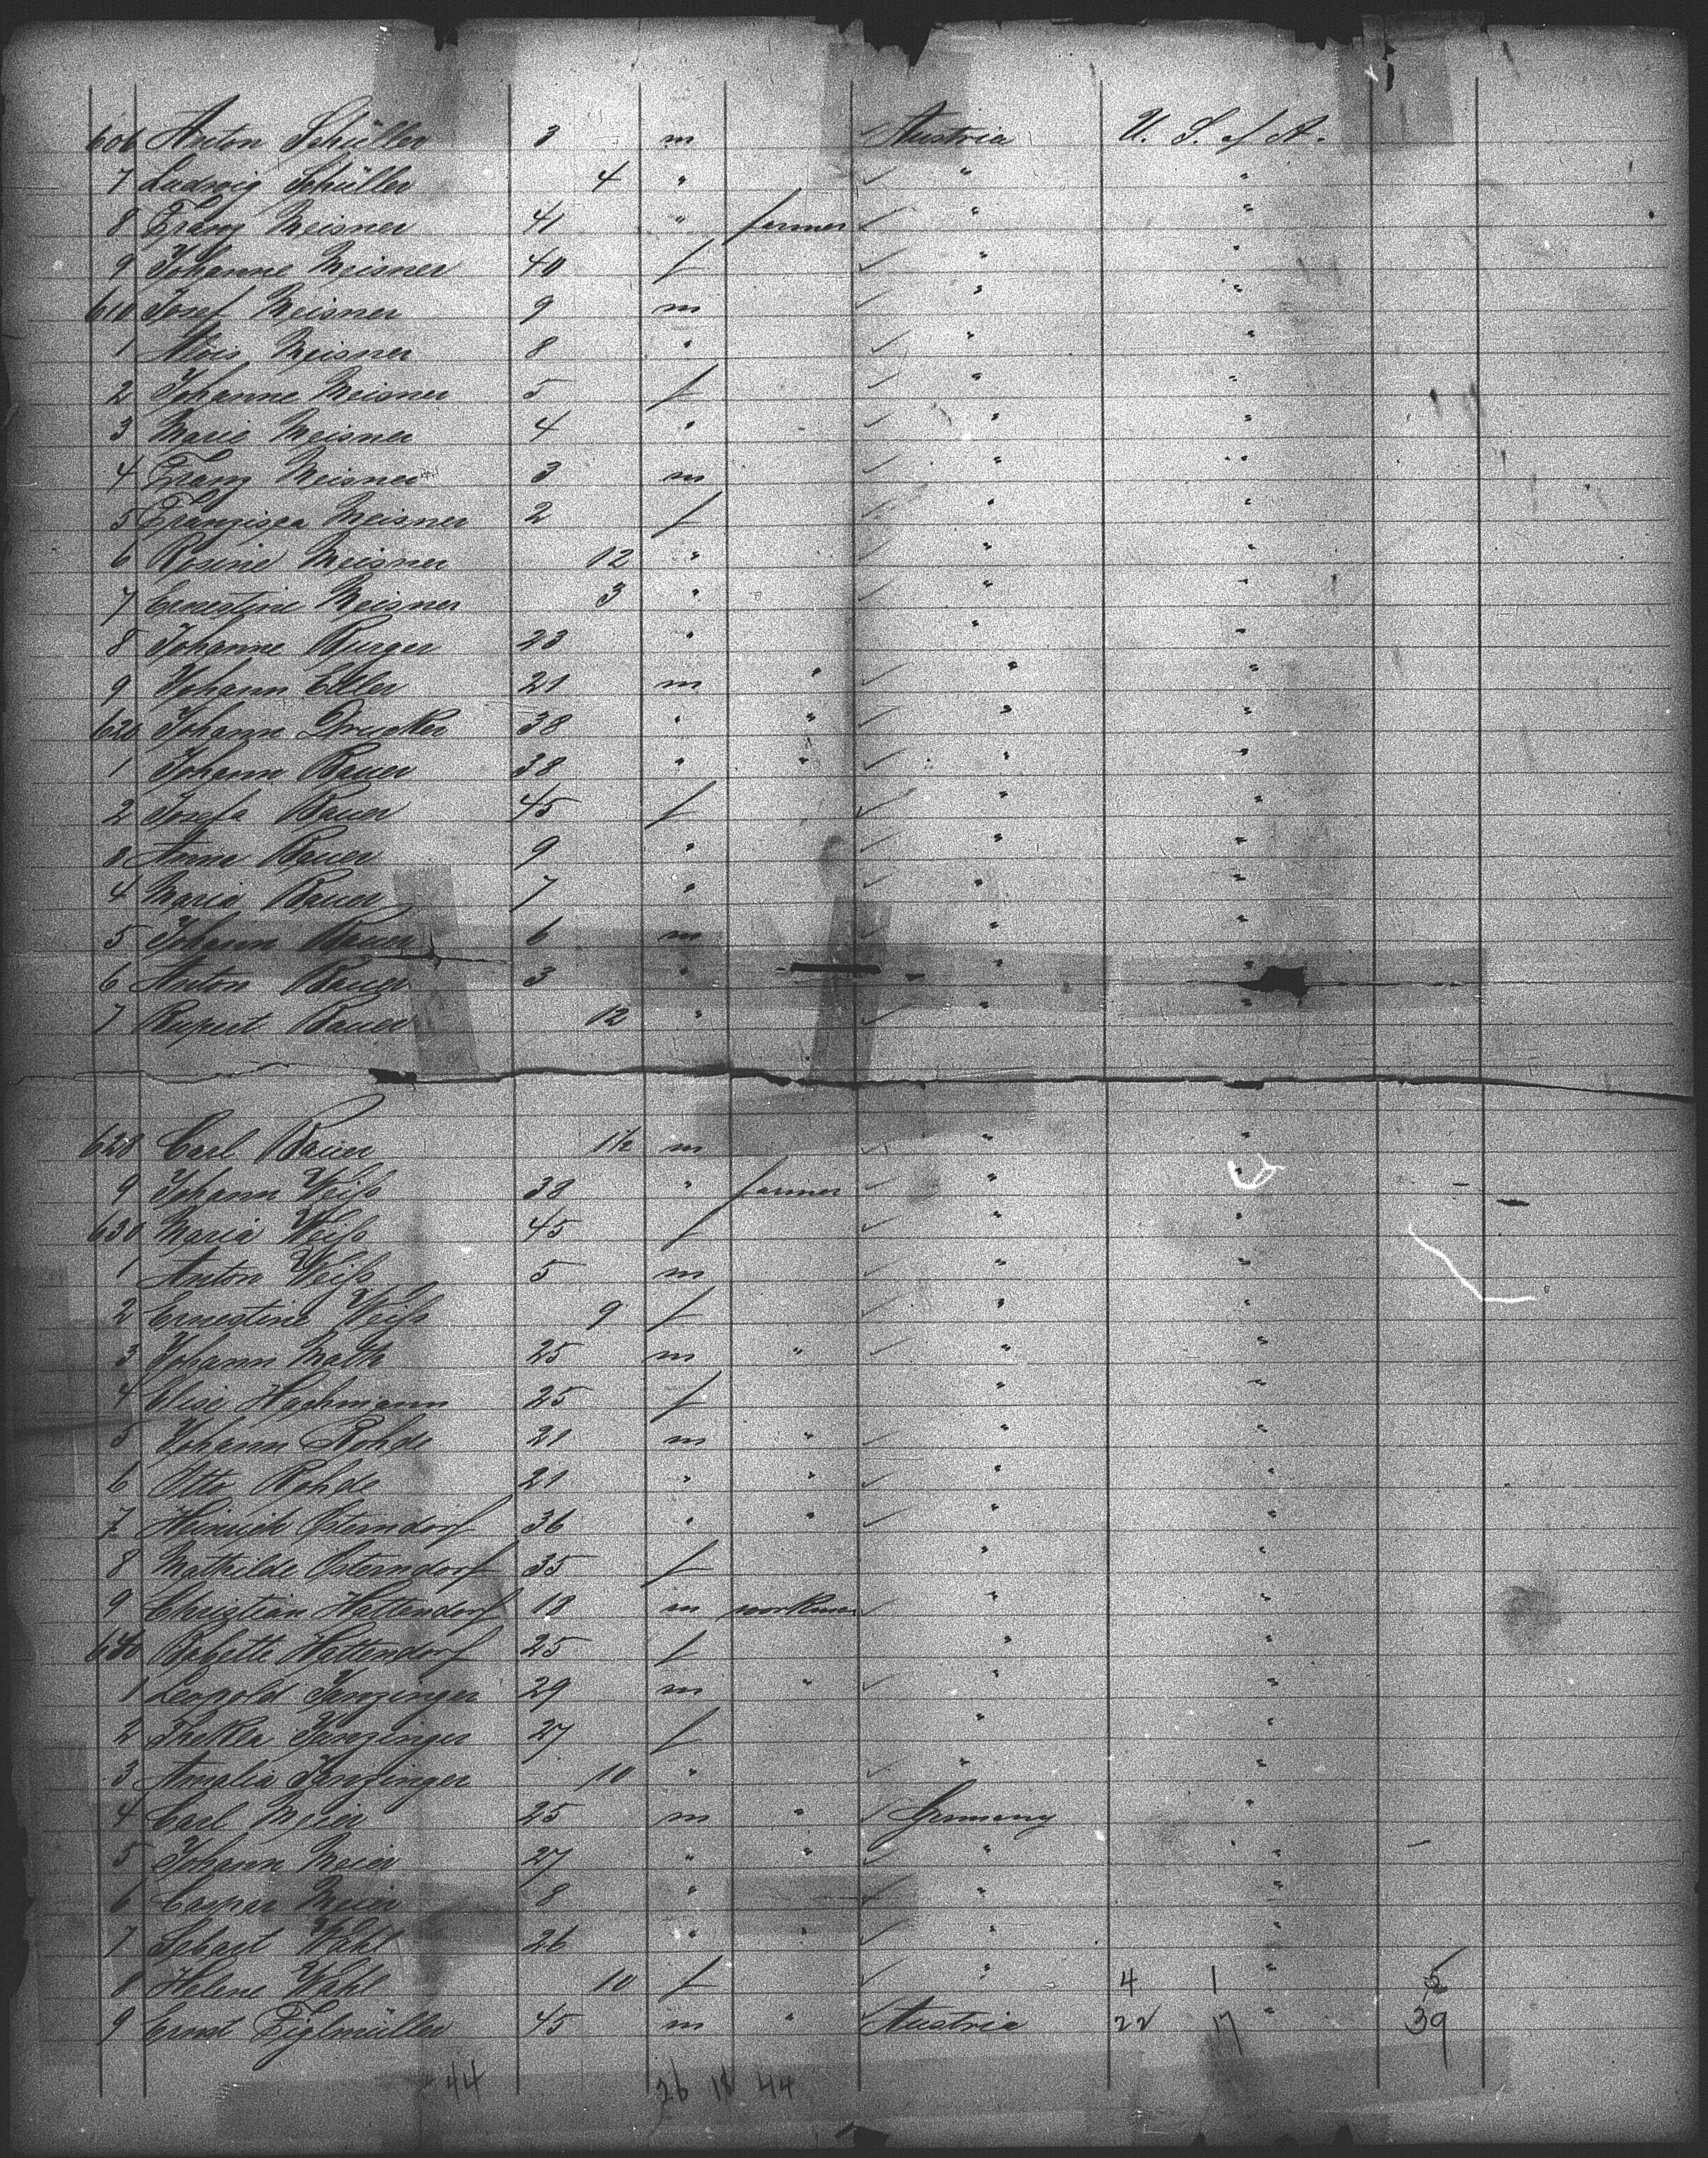 606 Anton Schüller 3 m Austria U. S. of A.
7 Ludwig Schüller 4 " " "
8 Franz Meisner 41 " farmer " "
9 Johanne Meisner 40 f " "
610 Josef Meisner 9 m " "
1 Alois Meisner 8 " " "
2 Johanne Meisner 5 f " "
3 Marie Meisner 4 " " "
4 Franz Meisner 3 m " "
5 Franzisca Meisner 2 f " "
6 Rosine Meisner 12 " " "
7 Ernestine Meisner 3 " " "
8 Johanne Burger 23 " " "
9 Johann Eller 21 m " " "
620 Johann Drucker 38 " " " "
1 Johann Bauer 38 " " " "
2 Josefa Bauer 45 f " "
3 Anna Bauer 9 " " "
4 Maria Bauer 7 " " "
5 Johann Bauer 6 m " "
6 Anton Bauer 3 " " "
7 Rupert Bauer 12 " " "
628 Carl Bauer 1½ m " "
9 Johann Weiß 38 " farmer " "
630 Maria Weiß 45 f " "
1 Anton Weiß 5 m " "
2 Ernestine Weiß 9 f " "
3 Johann Math 25 m " " "
4 Elise Hachmann 25 f " "
5 Johann Rohde 21 m " " "
6 Otto Rohde 21 " " " "
7 Heinrich Osterndorf 36 " " " "
8 Mathilde Osterndorf 35 f " "
9 Christian Hattendorf 19 m workman " "
640 Babette Hattendorf 25 f " "
1 Leopold Janzinger 29 m " " "
2 Thekla Janzinger 27 f " "
3 Amalia Janzinger 10 " " "
4 Carl Meier 25 m " Germany "
5 Johann Meier 27 " " " "
6 Caspar Meier 8 " " "
7 Sebast Wahl 26 " " " "
8 Helene Wahl 10 f " 4 1 " 5
9 Ernst Figlmüller 45 m " Austria 22 17 " 39
44 26 18 44